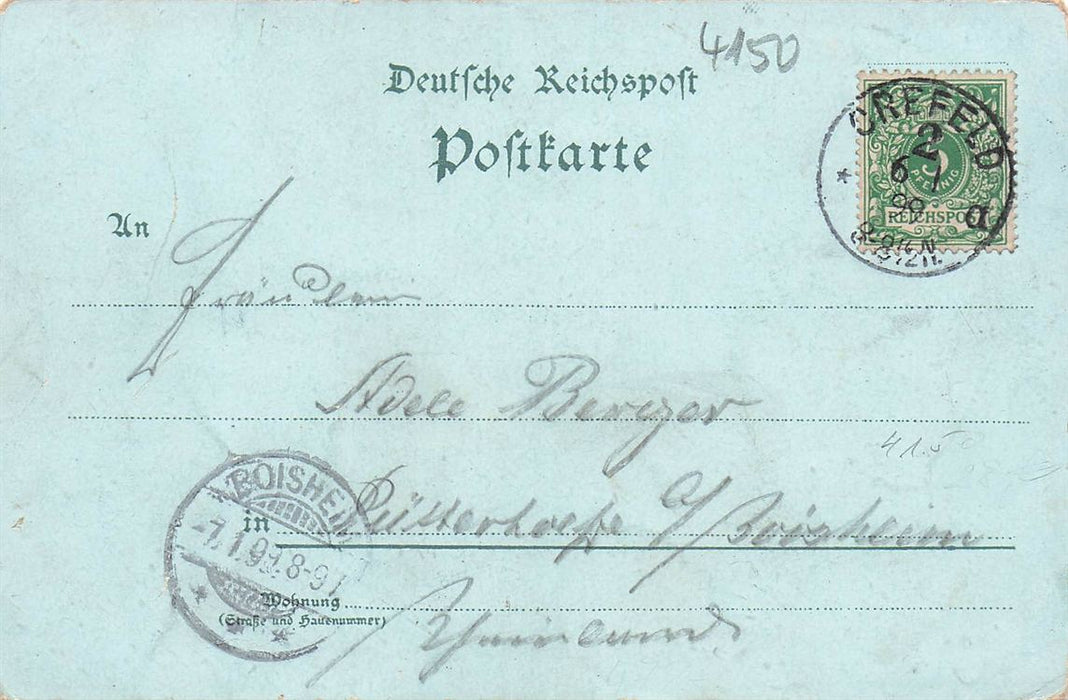 4150
Deutsche Reichspost
Postkarte
CREFELD
2
6 1
99
8-9 N.
a
5
PFENNIG
REICHSPOST
An
Fräulein
Adele Berger
41.50
BOISHEIM
7.1.99. 8-9
in
a/ Boisheim
Wohnung
(Straße und Hausnummer)
Rheinland